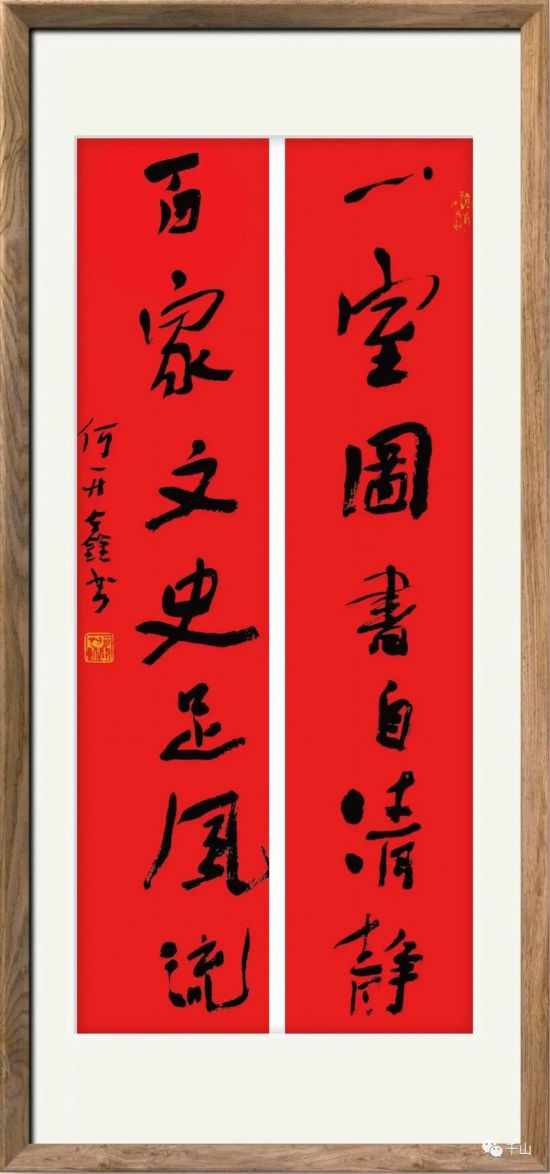 一室圖書自清靜
百家文史足風流
何开鑫书
千山